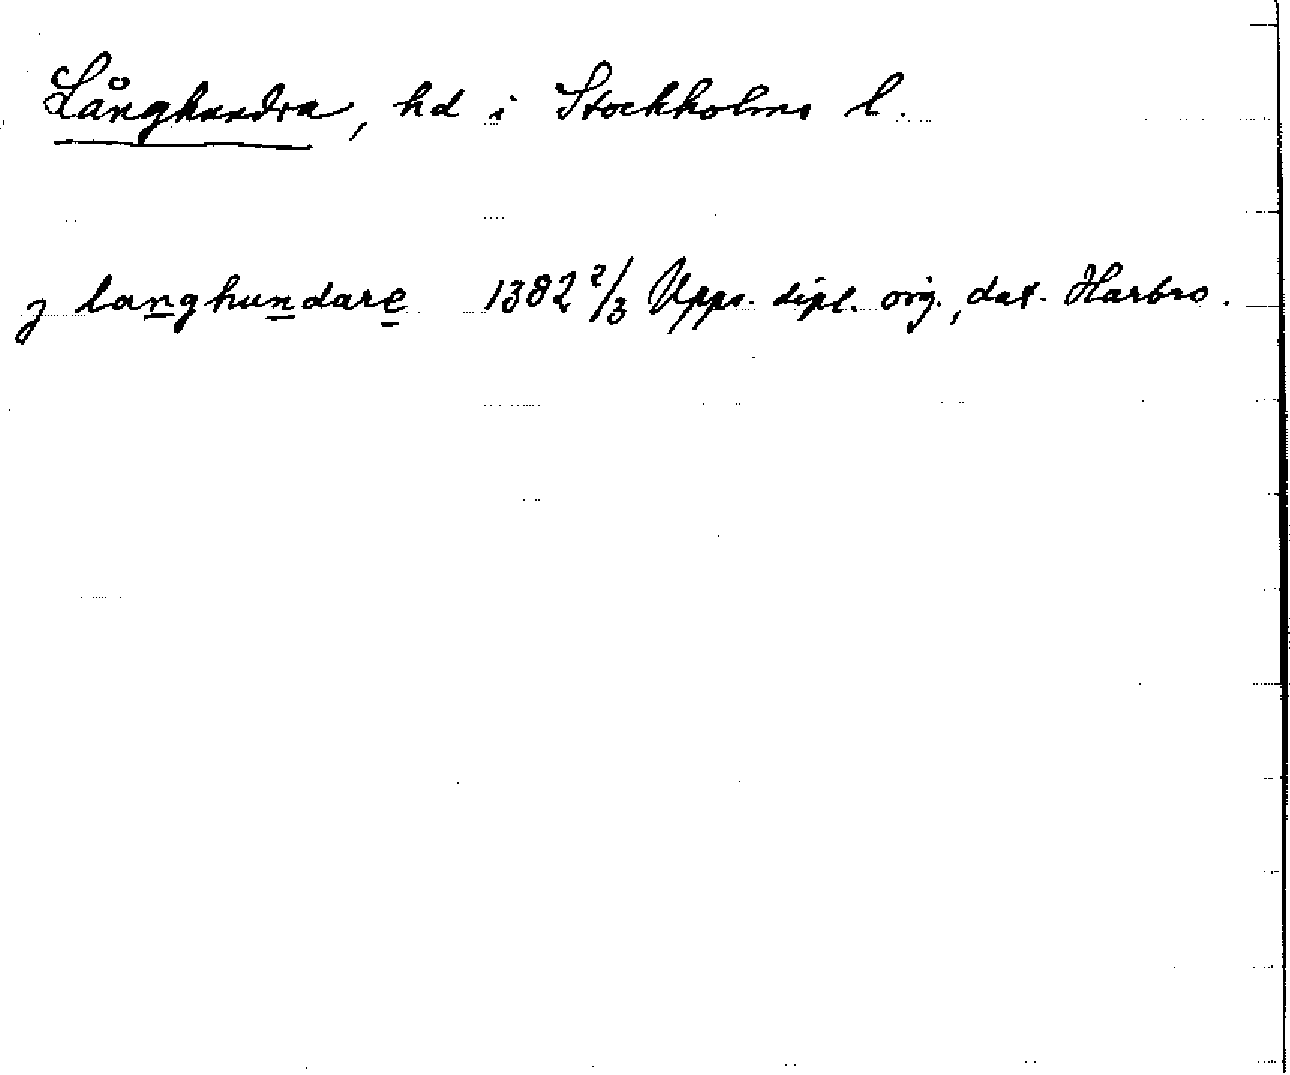 Långhundra, hd i Stockholms l.
j langhundare 1382 2/3 Upps. dipl. orig., dat. Harbro.